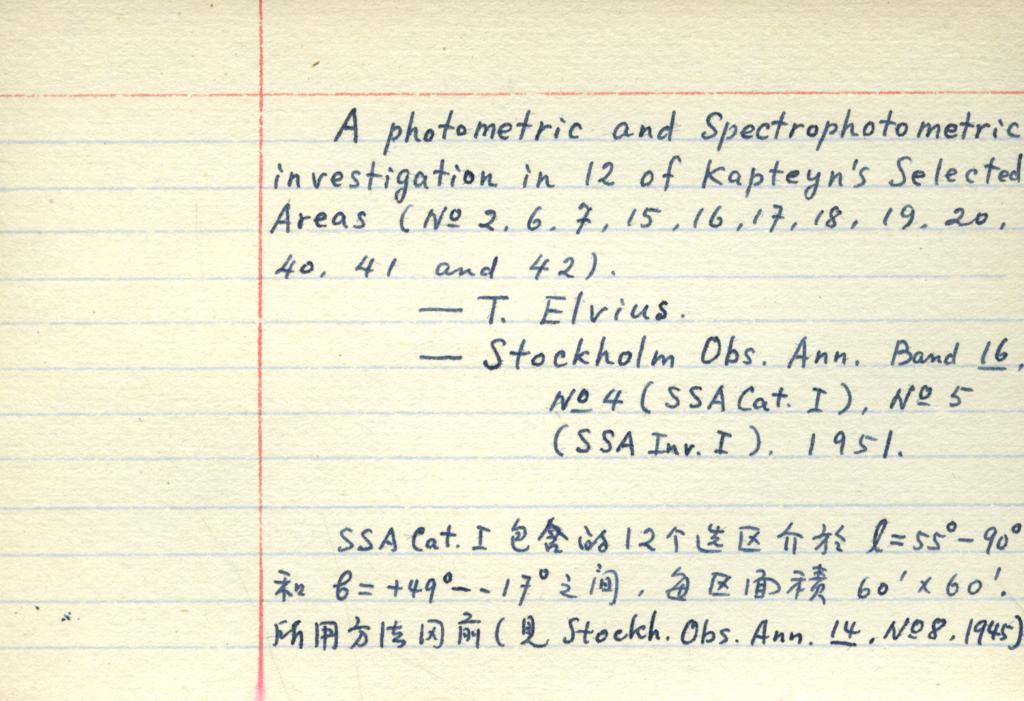 A photometric and Spectrophotometric
investigation in 12 of Kapteyn's Selected
Areas (№ 2, 6, 7, 15, 16, 17, 18, 19, 20,
40, 41 and 42).
— T. Elvius.
— Stockholm Obs. Ann. Band 16,
№ 4 (SSA Cat. I), № 5
(SSA Inv. I). 1951.
SSA Cat. I 包含的12个选区介于 l=55°-90°
和 b=+49°--17°之间,每区面积 60'×60'.
所用方法同前(见 Stockh. Obs. Ann. 14, №8, 1945)